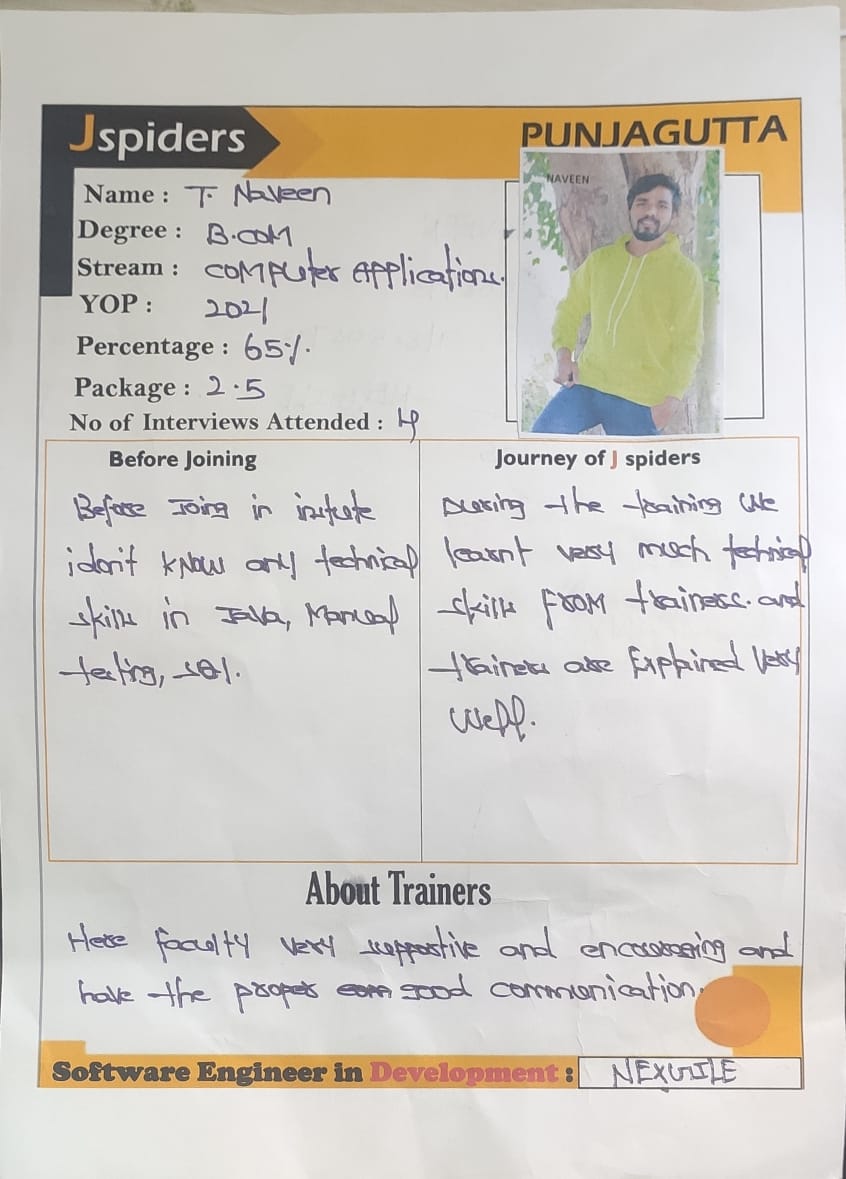 Jspiders
PUNJAGUTTA
NAVEEN
Name : T. Naveen
Degree : B.COM
Stream : Computer Applications.
YOP : 2021
Percentage : 65%.
Package : 2.5
No of Interviews Attended : 4
Before Joining
Before Joing in initute
i don't know any technical
skills in Java, Manual
testing, sql.
Journey of J spiders
During the training we
learnt very much technical
skills from trainers. and
trainers are Explained very
well.
About Trainers
Here faculty very supportive and encouraging and
have the proper com good communication.
Software Engineer in Development : NEXGILE